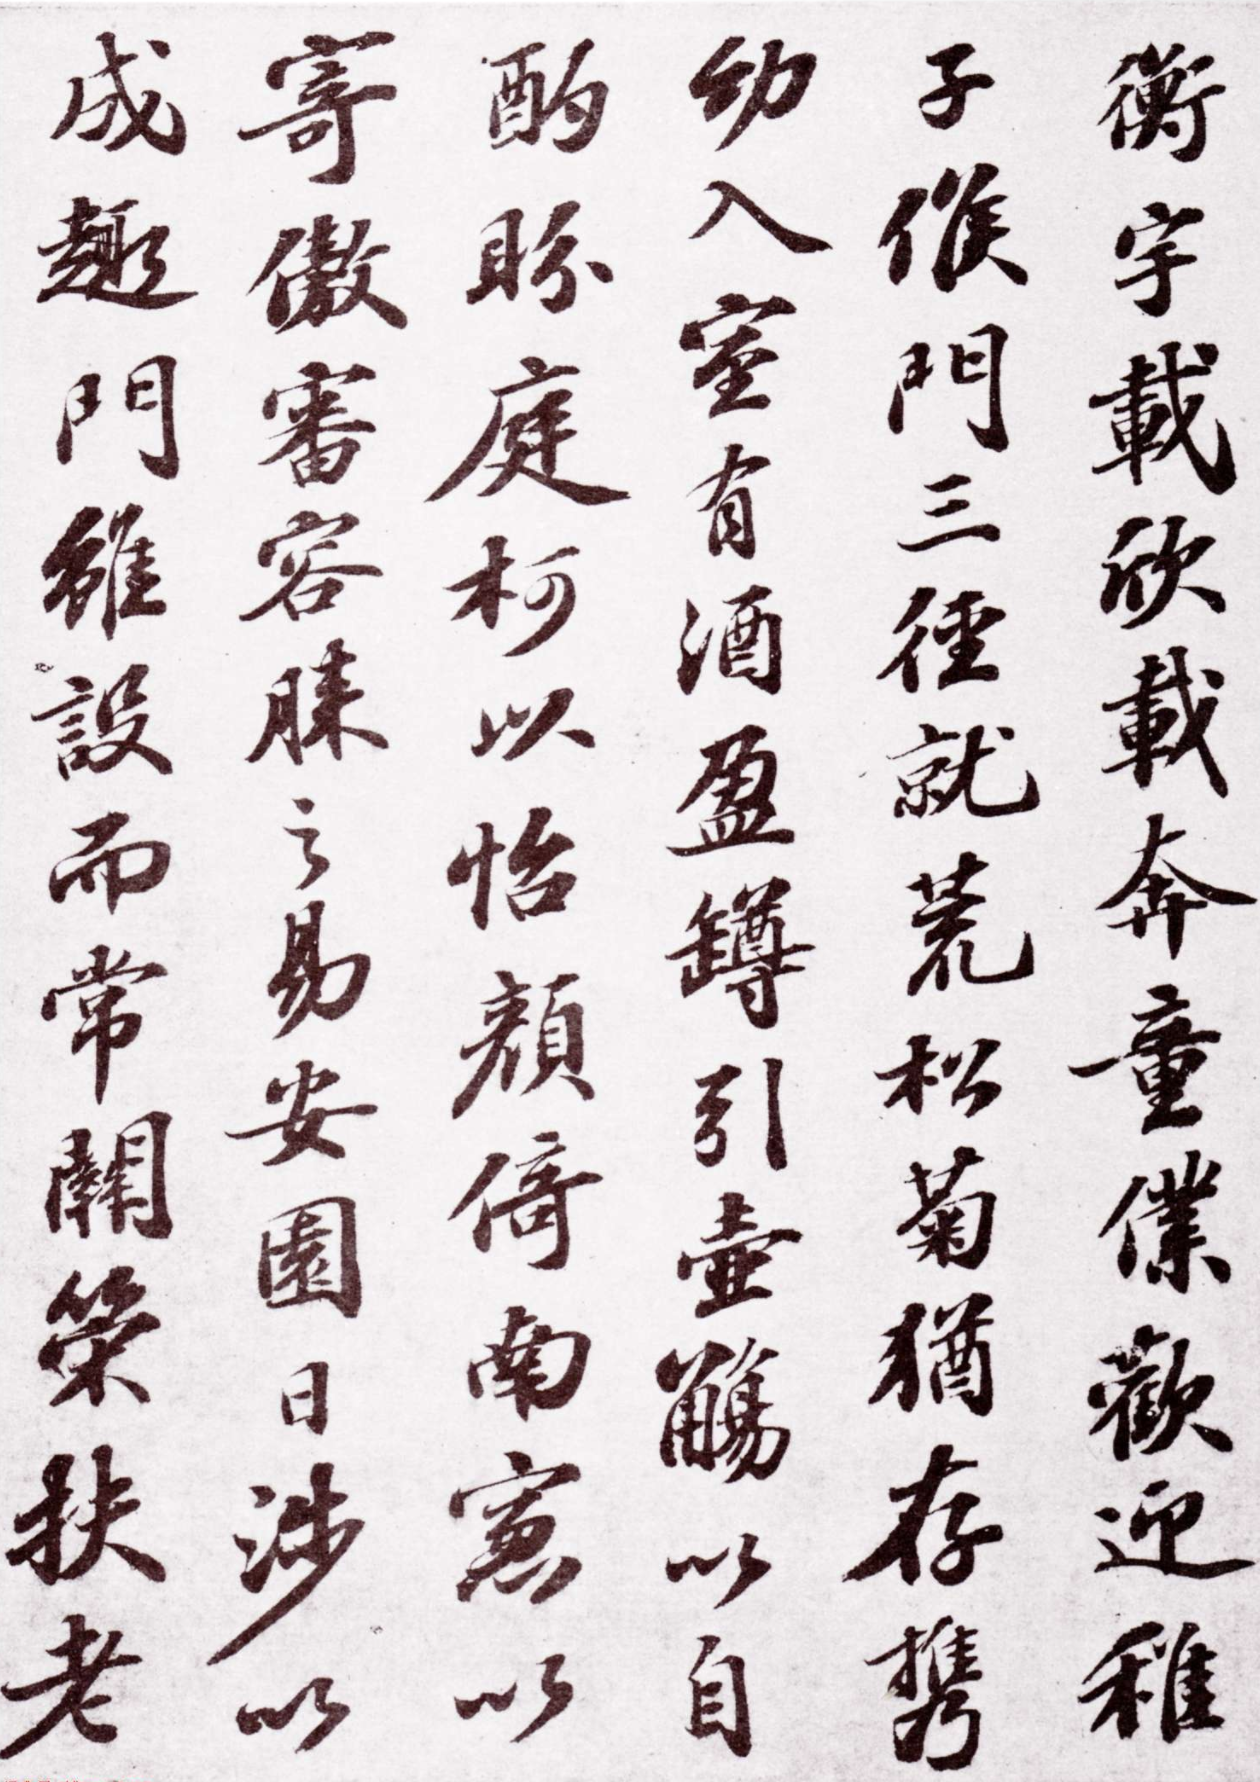 衡宇載欣載奔童僕歡迎稚
子候門三徑就荒松菊猶存携
幼入室有酒盈罇引壺觴以自
酌眄庭柯以怡顏倚南窓以
寄傲審容膝之易安園日涉以
成趣門雖設而常關策扶老